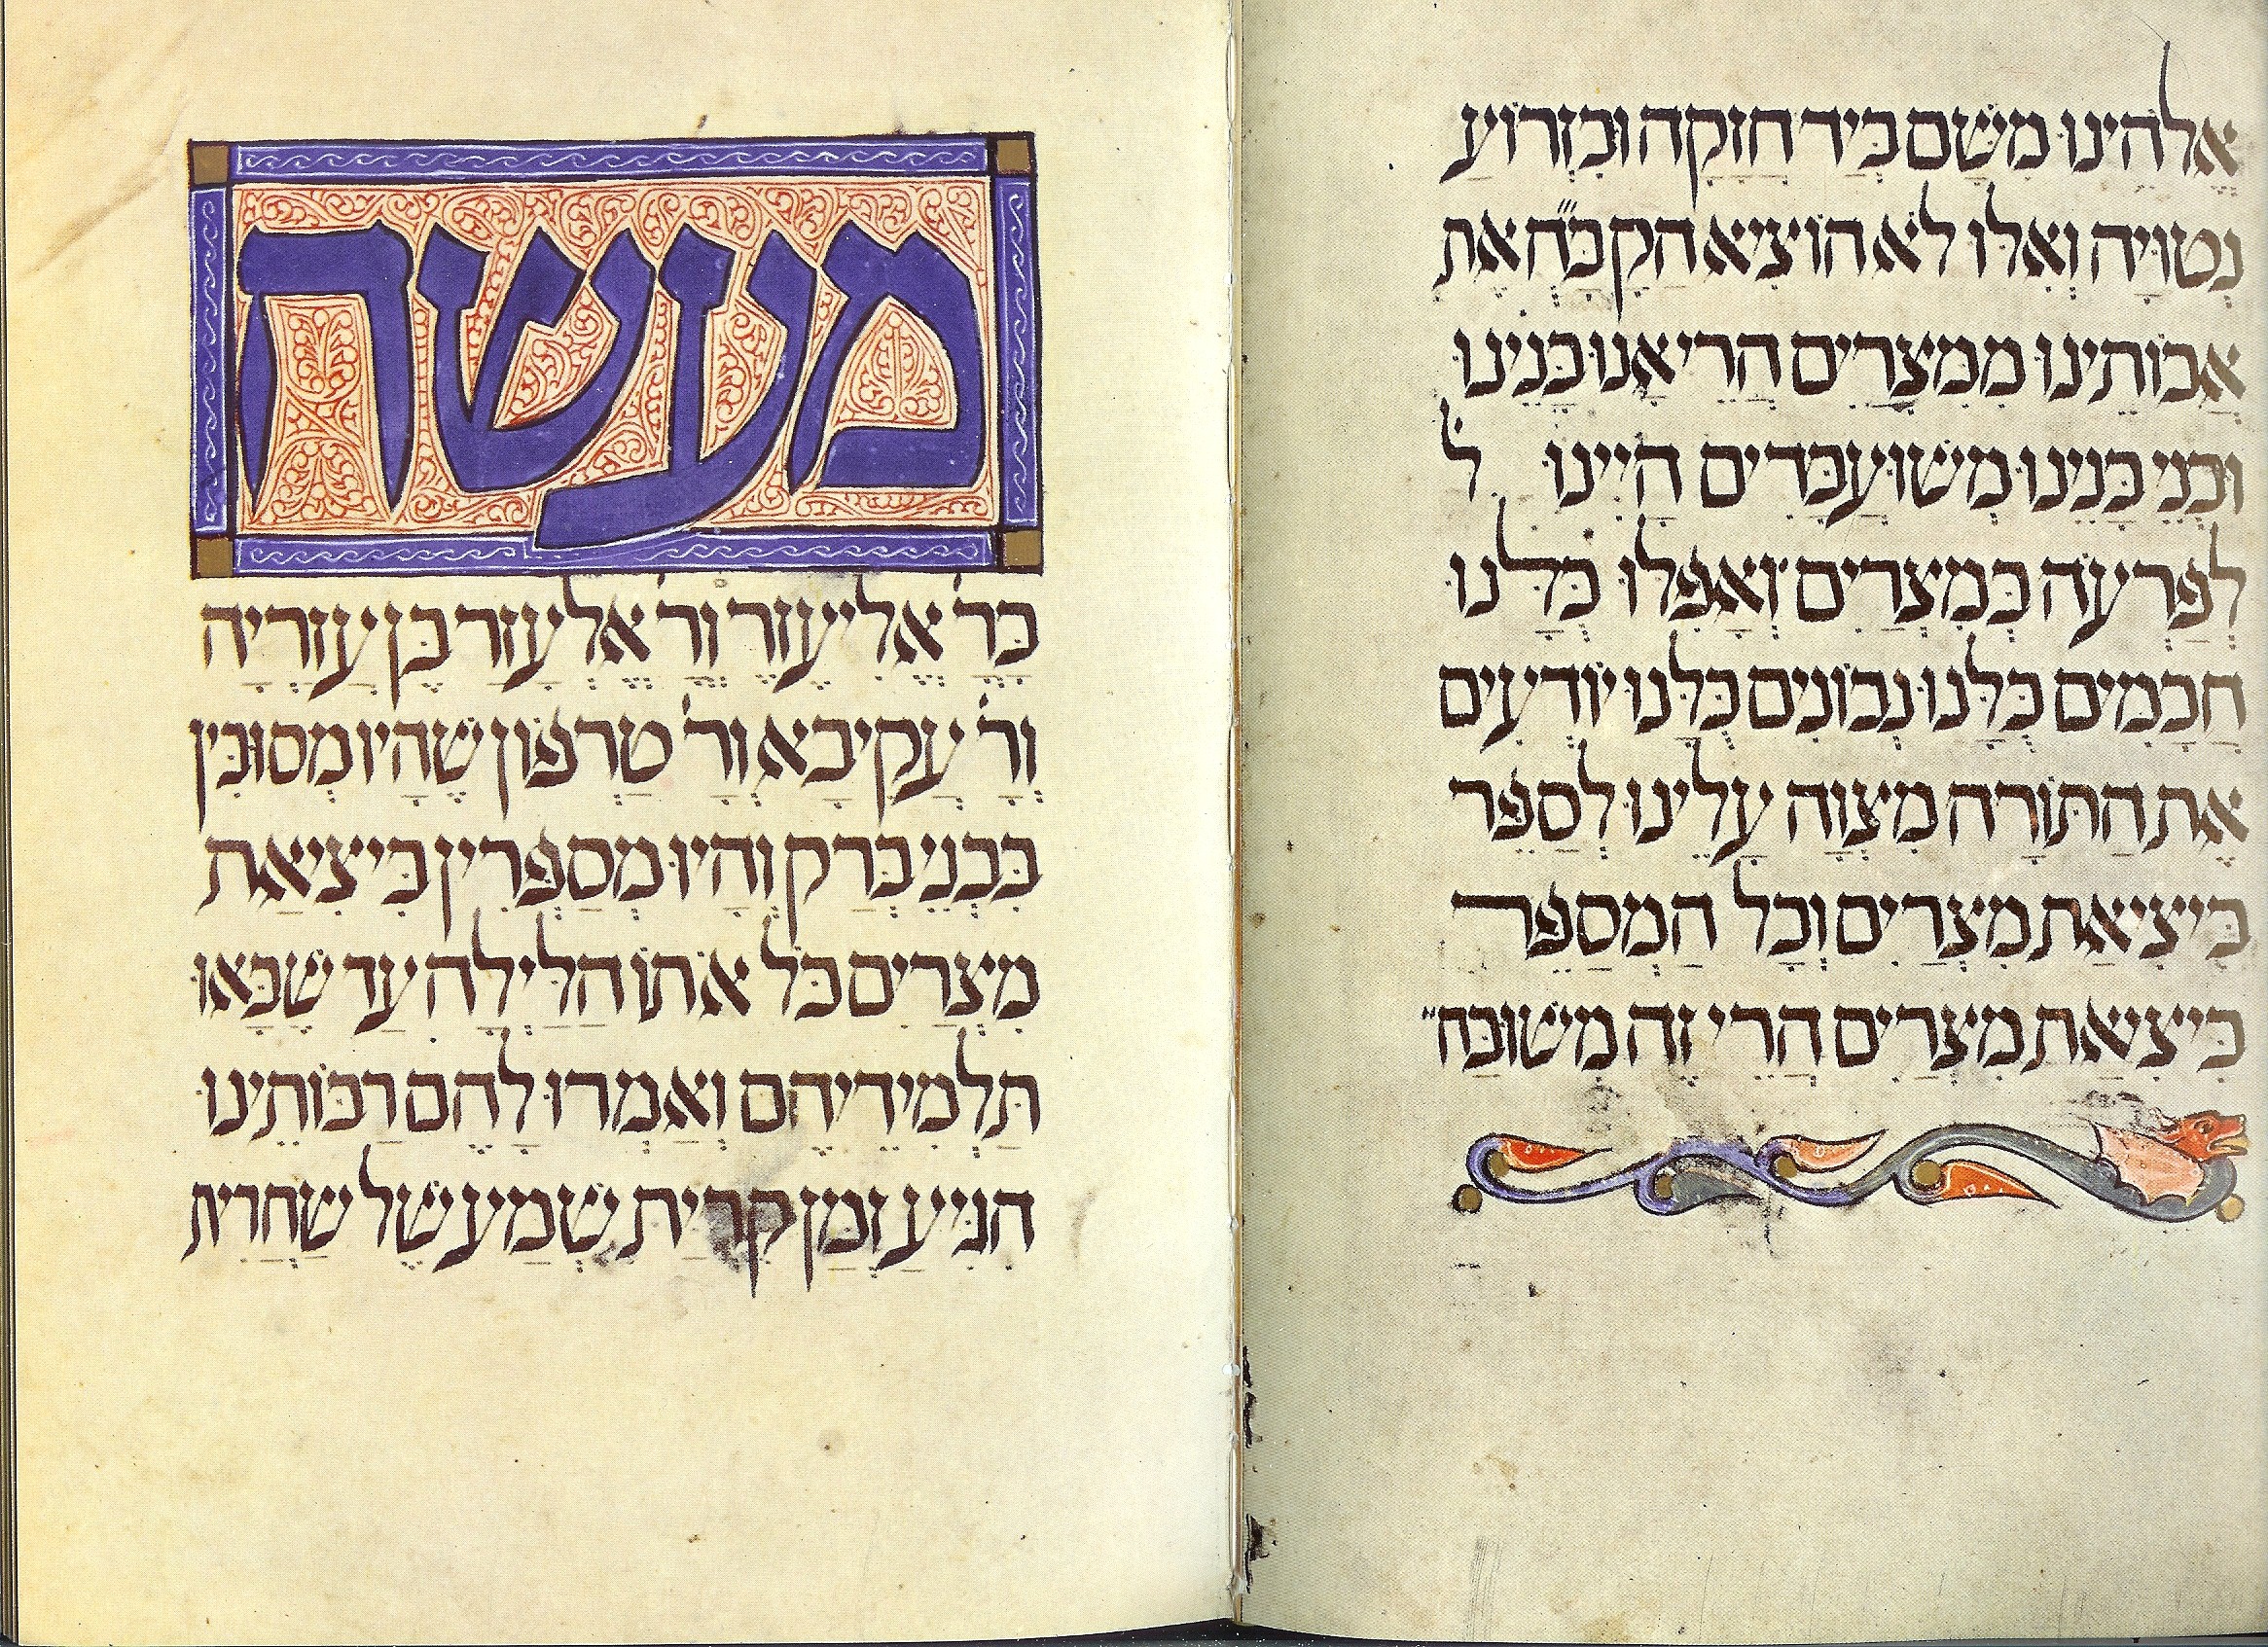 אֱלֹהֵינוּ מִשָּׁם בְּיָד חֲזָקָה וּבִזְרוֹעַ
נְטוּיָה וְאִלּוּ לֹא הוֹצִיא הַקָבָּ״הְ אֶת
אֲבוֹתֵינוּ מִמִּצְרַיִם הֲרֵי אָנוּ בָּנֵינוּ
וּבְנֵי בָנֵינוּ מְשׁוּעַבָּדִים הָיִינוּ ל
לְפַרְעֹה בְּמִצְרַיִם וְאֲפִלּוּ כֻּלָּנוּ
חֲכָמִים כֻּלָּנוּ נְבוֹנִים כֻּלָּנוּ יוֹדְעִים
אֶת הַתּוֹרָה מִצְוָה עָלֵינוּ לְסַפֵּר
בִּיצִיאַת מִצְרַיִם וְכָל הַמְסַפֵּר
בִּיצִיאַת מִצְרַיִם הֲרֵי זֶה מְשׁוּבַּח״
מעשה
בְּרׄ אֱלִיעֶזֶר וְרׄ אֶלְעָזָר בֶּן עֲזַרְיָה
וְרׄ עֲקִיבָא וְרׄ טַרְפוֹן שֶׁהָיוּ מְסוּבִּין
בִּבְנֵי בְּרַק וְהָיוּ מְסַפְּרִין בִּיצִיאַת
מִצְרַיִם כָּל אֹתוֹ הַלַּיְלָה עַד שֶׁבָּאוּ
תַּלְמִידֵיהֶם וְאָמְרוּ לָהֶם רַבּוֹתֵינוּ
הִגִּיעַ זְמַן קְרִיַת שְׁמַע שֶׁל שַׁחֲרִית